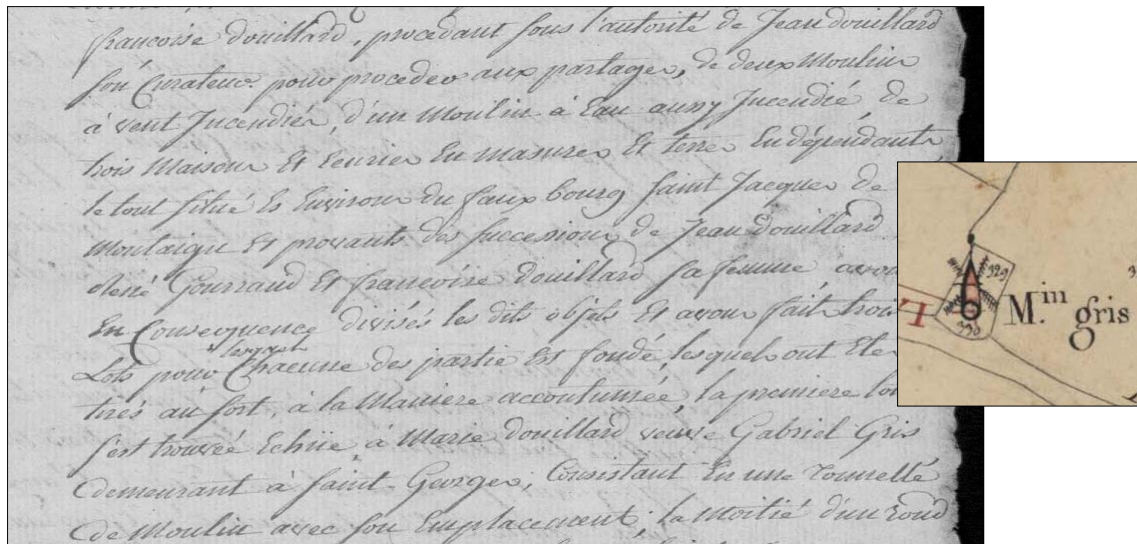 françoise douillard, procedant sous l'autorité de Jean douillard
son Curateur pour proceder aux partages, de deux Moulin
à vent Jncendiés, d'un Moulin à Eau aussy Jncendié, de
trois Maisons Et Ecurier En masures Et terre En dépendante
le tout situé Es Environs du faux bourg Saint Jacques de
Montaigu Et provants des successions de Jean douillard
René Gourraud Et françoise Douillard sa femme avons
En Consequence divisés les dits objets Et avons fait trois
lesquels
Lots pour Chacune des partie Est fondé, lesquels ont Ete
tirés au sort, à la Maniere accoutumée, la premiere lot
s'est trouvée Echüe à Marie Douillard veuve Gabriel Gris
demeurant à Saint-Georges, Consistant En une Tourelle
de Moulin avec son Emplacement; la Moitié d'un Rond
M.in gris
929
930